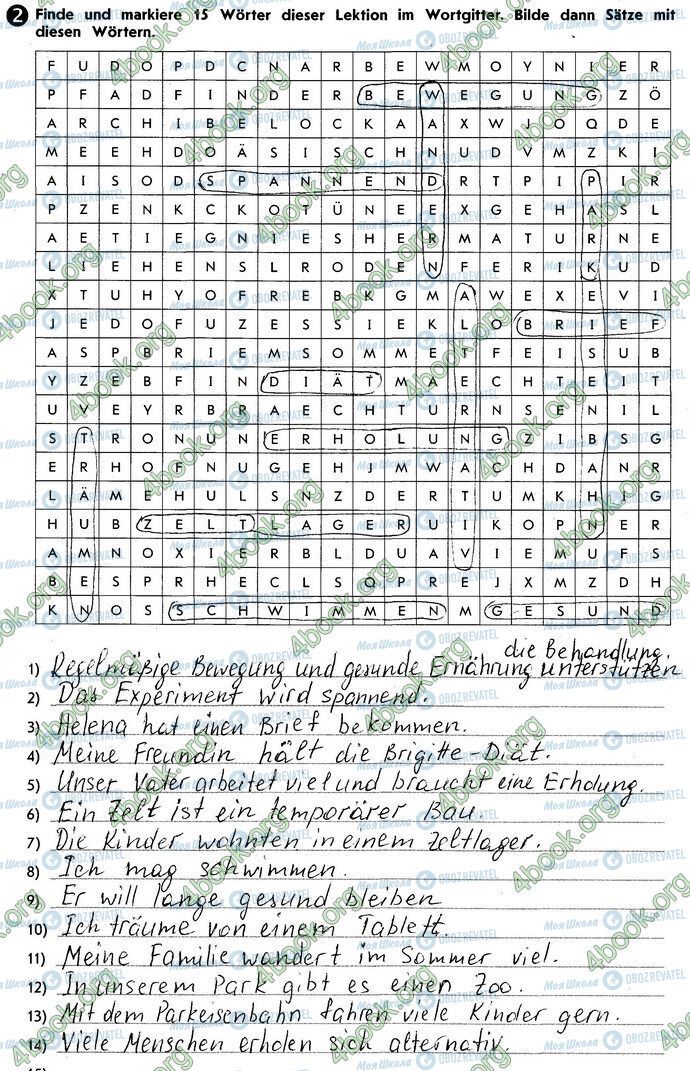 2 Finde und markiere 15 Wörter dieser Lektion im Wortgitter. Bilde dann Sätze mit
diesen Wörtern.
F U D O P D C N A R B E W M O Y N I E R
P F A D F I N D E R B E W E G U N G Z Ö
A R C H I B E L O C K A A X W J O Q D E
M E E H D O Ä S I S C H N U D V M Z K I
A I S O D S P A N N E N D R T P I P I R
P Z E N K C K O T Ü N E E X G E H A S L
A E T I E G N I E S H E R M A T U R N E
L I E H E N S L R O D E N F E R R K U D
X T U H Y O F R E B K G M A W E X E V I
J E D O F U Z E S S I E K L O B R I E F
A S P B R I E M S O M M E T F E I S U B
Y Z E B F I N D I Ä T M A E C H T E I T
U V E Y R B R A E C H T U R N S E N I L
S T R O N U N E R H O L U N G Z I B S G
E R H O F N U G E H J M W A C H D A N R
L Ä M E H U L S N Z D E R T U M K H I G
H U B Z E L T L A G E R U I K O P N E R
A M N O X I E R B L D U A V I E M U F S
B E S P R H E C L S O P R E J X M Z D H
K N O S S C H W I M M E N M G E S U N D
die Behandlung.
1) Regelmäßige Bewegung und gesunde Ernährung unterstützen
2) Das Experiment wird spannend.
3) Helena hat einen Brief bekommen.
4) Meine Freundin hält die Brigitte-Diät.
5) Unser Vater arbeitet viel und braucht eine Erholung.
6) Ein Zelt ist ein temporärer Bau.
7) Die Kinder wohnten in einem Zeltlager.
8) Ich mag schwimmen.
9) Er will lange gesund bleiben
10) Ich träume von einem Tablett.
11) Meine Familie wandert im Sommer viel.
12) In unserem Park gibt es einen Zoo.
13) Mit dem Parkeisenbahn fahren viele Kinder gern.
14) Viele Menschen erholen sich alternativ.